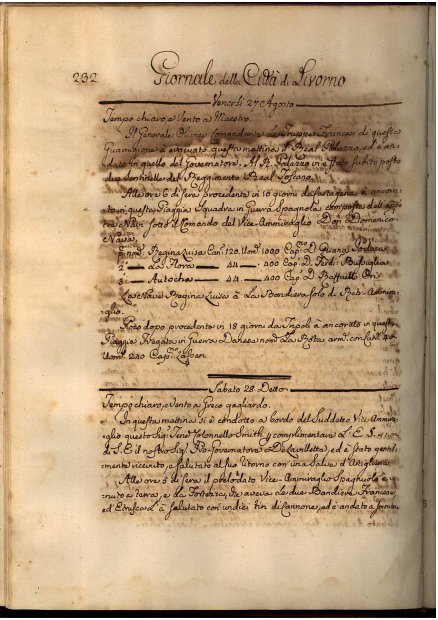 232 Giornale della Città di Livorno
Venerdì 27 Agosto
Tempo chiaro, e Vento a Maestro.
Il Generale Olivier Comandante le Truppe Francesi di questa
Guarnigione à evacuato questa mattina il Real Palazzo, ed è an-
dato in quello del Governatore. Al R. Palazzo vi è stato subito posto
due Sentinelle del Reggimento Real Toscano.
Alle ore 6 di sera proveniente in 10 giorni da Cartagena è ancora-
to in questa Piaggia Squadra in Guerra Spagnola composta dell'appie-
è Navi sotto il Comando del Vice-Ammiraglio Don Domenico
Nava.
nom. Regina Luisa Can. 120. Uom. 1000 Cap. D.
2 La Flora 44 400 Cap. D. Ferd.
3 44 400 Cap. D. Raffaelle
La Nave Regina Luisa à La Bandiera di Ammira-
glio.
Poco dopo proveniente in 18 giorni da è ancorato in questa
Piaggia Fregata in Guerra nom. La arm. con Can. 40
Uom. 240 Cap.
Sabato 28 Detto
Tempo chiaro, e Vento a Greco gagliardo.
In questa mattina si è condotto a bordo del Suddetto Vice Ammi-
raglio questo Sig. Tene. Colonnello Smith a complimentare L. E. S. a nome
di S. E. il nostro Sig. Governatore De Lavillette, ed è stato gentil-
mente ricevuto, e salutato al suo ritorno con una Salva d'Artiglieria.
Alle ore 5 di sera il prelodato Vice-Ammiraglio Spagnuolo è ve-
nuto a terra, e la Fortezza, che aveva le due Bandiere Francese,
ed Etrusca L'à salutato con undici tiri di Cannone, ed è andato a